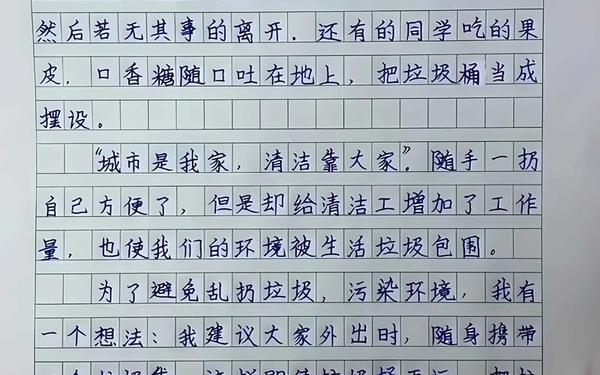 然后若无其事的离开. 还有的同学吃的果
皮. 口香糖随口吐在地上，把垃圾桶当成
摆设。
“城市是我家，清洁靠大家”. 随手一扔
自己方便了，但是却给清洁工增加了工作
量，也使我们的环境被生活垃圾包围。
为了避免乱扔垃圾，污染环境，我有
一个想法：我建议大家外出时，随身携带